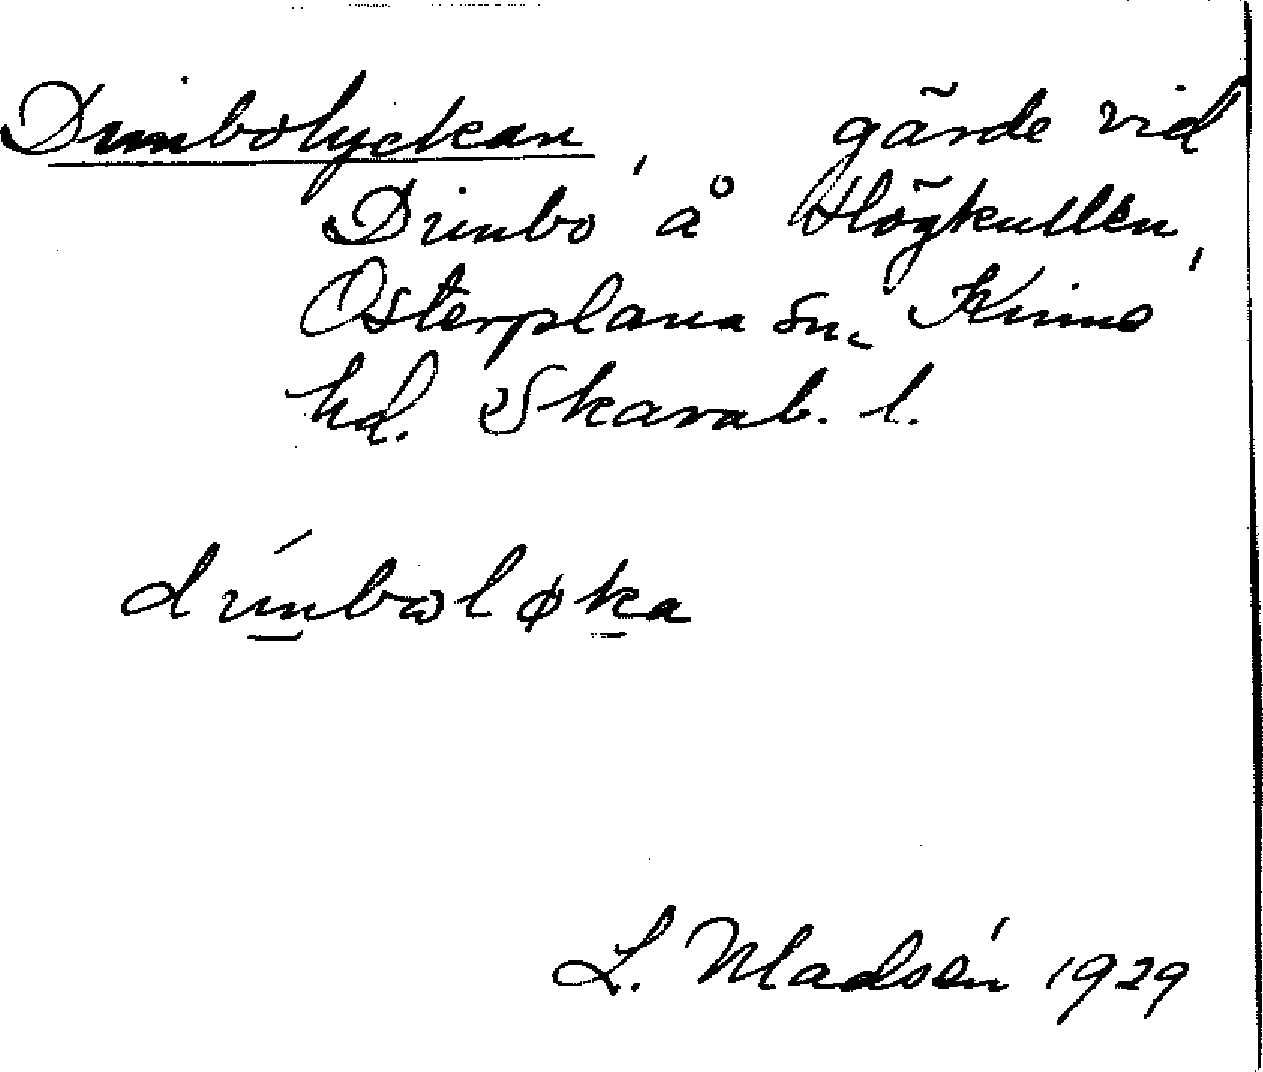 Drimbolyckan, gärde vid
Drimbo å Högkullen,
Osterplana sn, Kinne
hd. Skarab. l.
drímbωløka
L. Madsén 1929